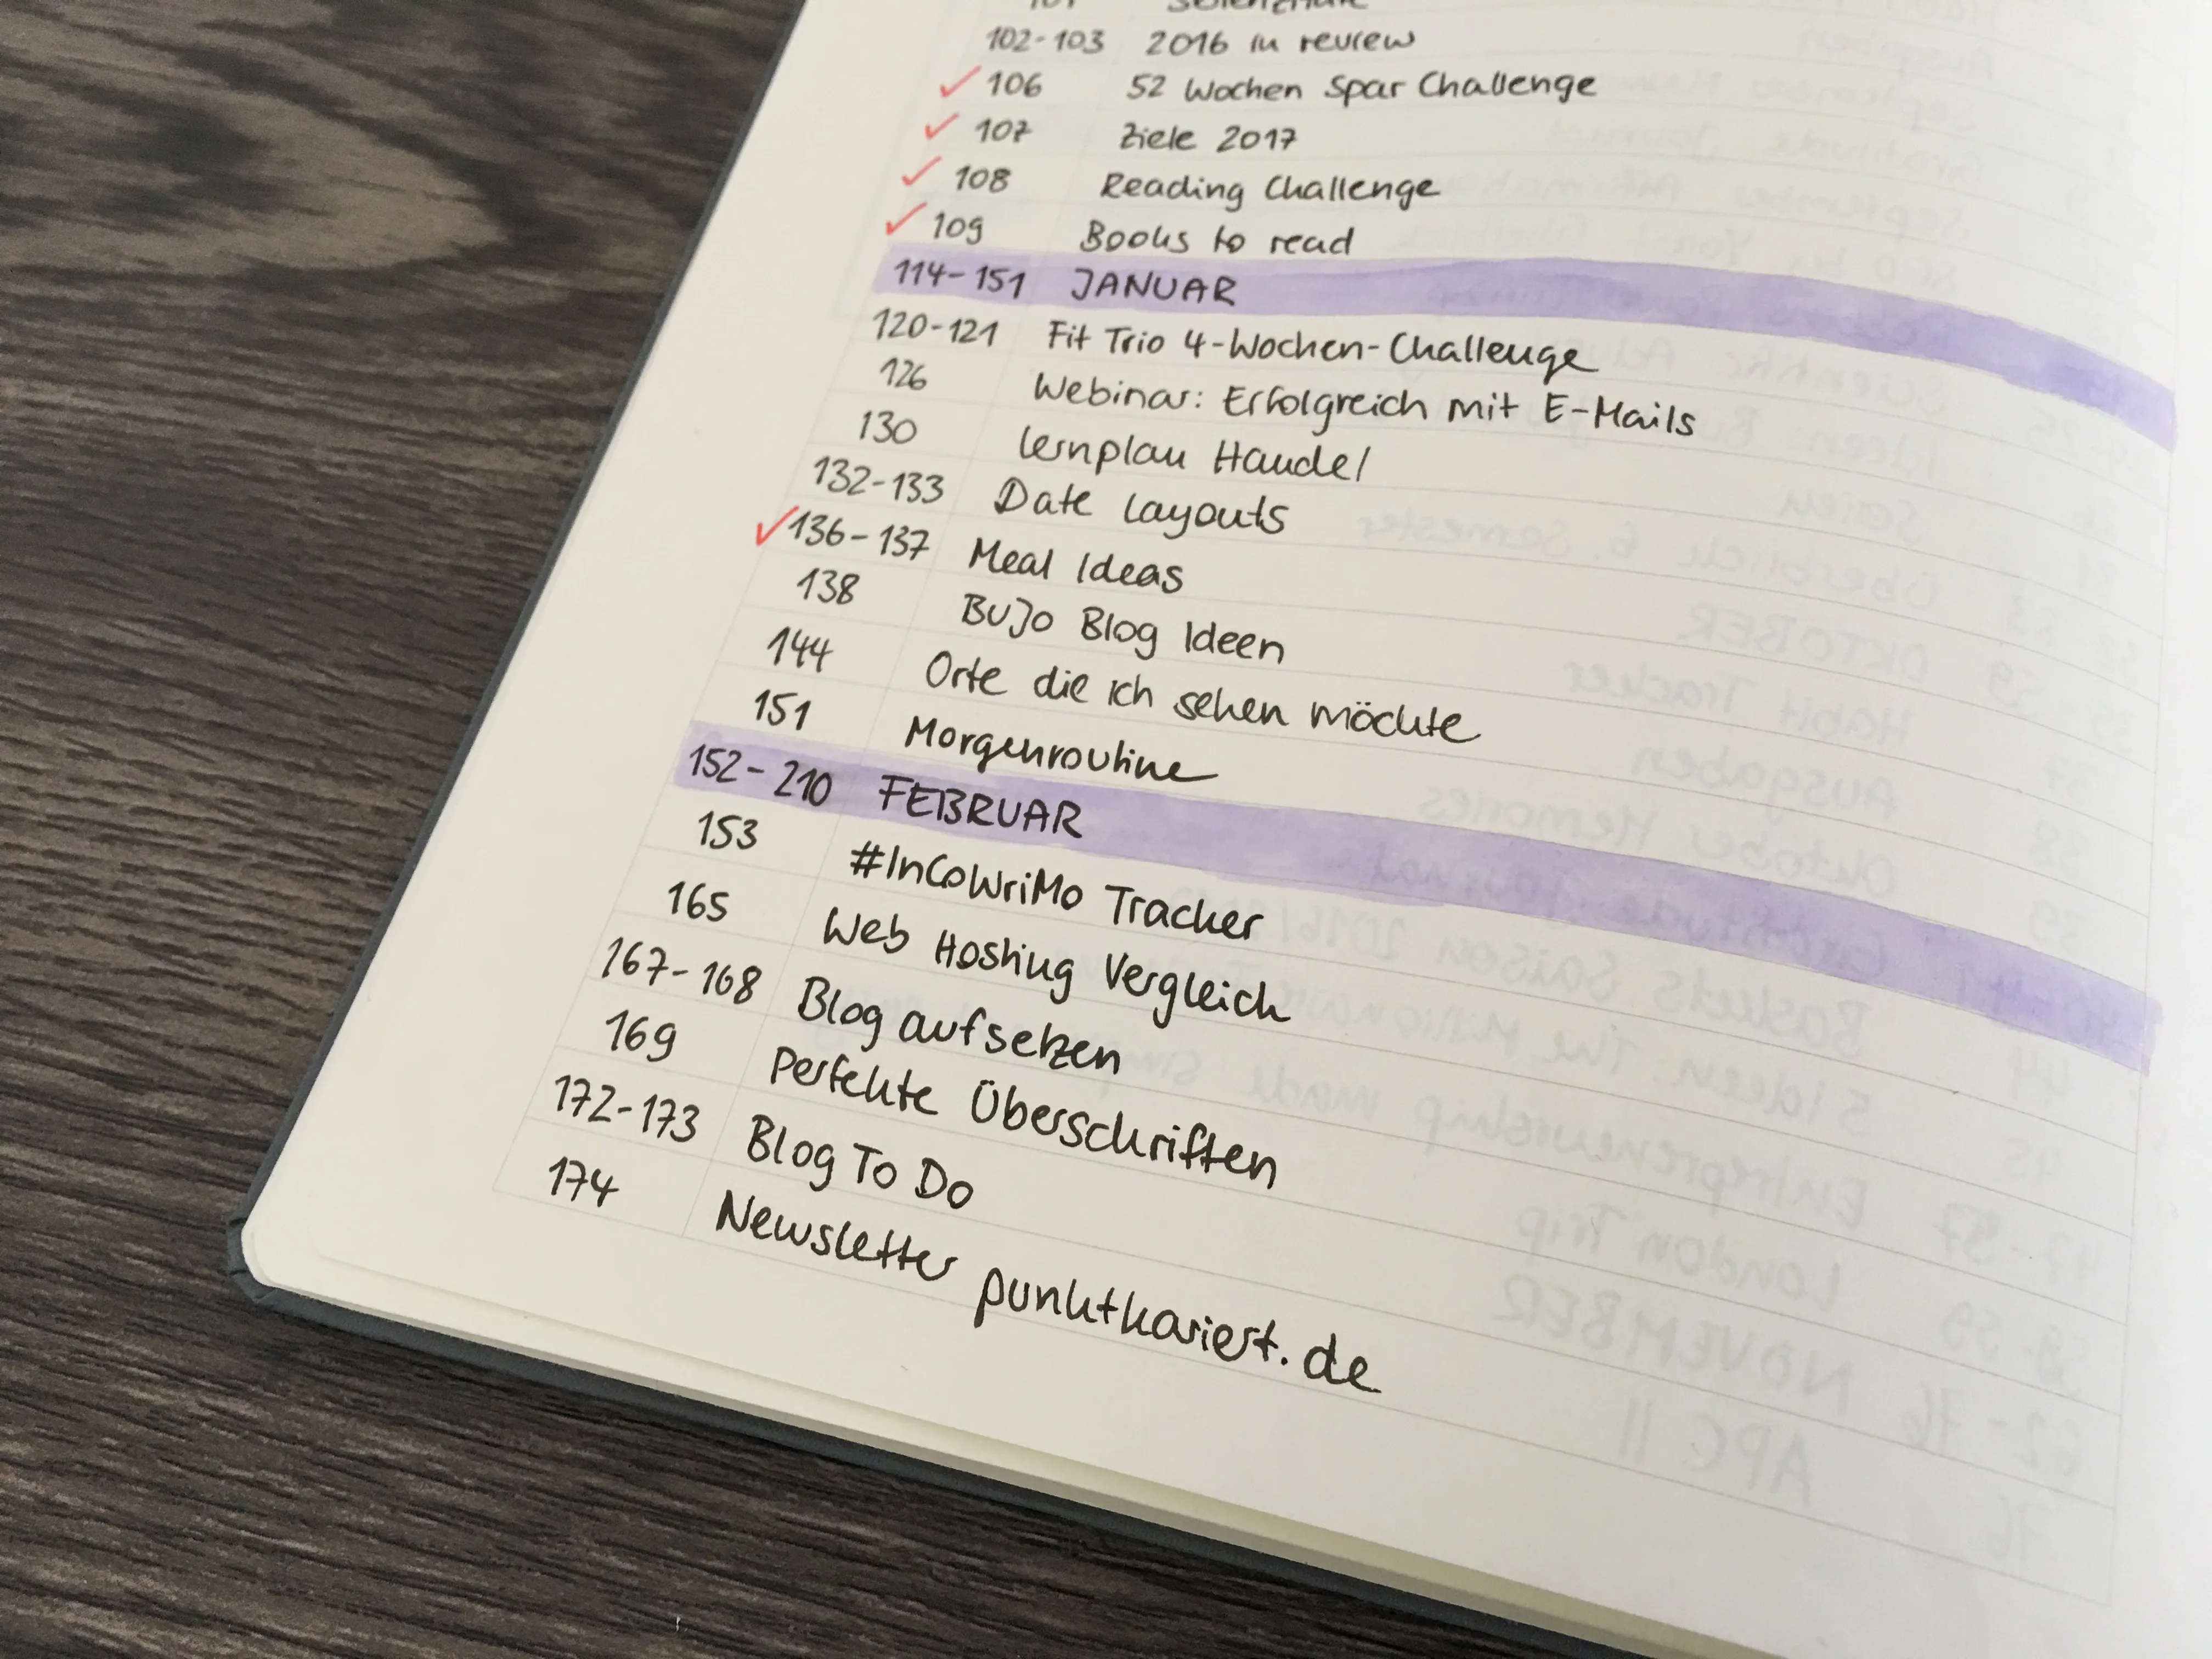 102-103 2016 in review
✓ 106 52 Wochen Spar Challenge
✓ 107 Ziele 2017
✓ 108 Reading Challenge
✓ 109 Books to read
114-151 JANUAR
120-121 Fit Trio 4-Wochen-Challenge
126 Webinar: Erfolgreich mit E-Mails
130 Lernplan Handel
132-133 Date Layouts
✓ 136-137 Meal Ideas
138 BuJo Blog Ideen
144 Orte die ich sehen möchte
151 Morgenroutine
152-210 FEBRUAR
153 #InCoWriMo Tracker
165 Web Hosting Vergleich
167-168 Blog aufsetzen
169 Perfekte Überschriften
172-173 Blog To Do
174 Newsletter punktkariert.de